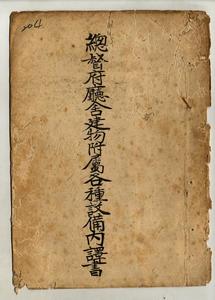 204
總督府廳舍建物附屬各種設備內譯書